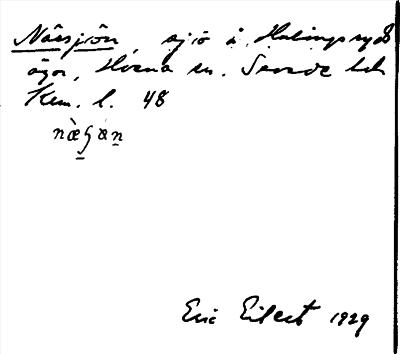 Nässjön, sjö å Hulingsryds
ägor, Hvena sn. Sevede hd
Kem. l. 48
Eric Eilert 1929